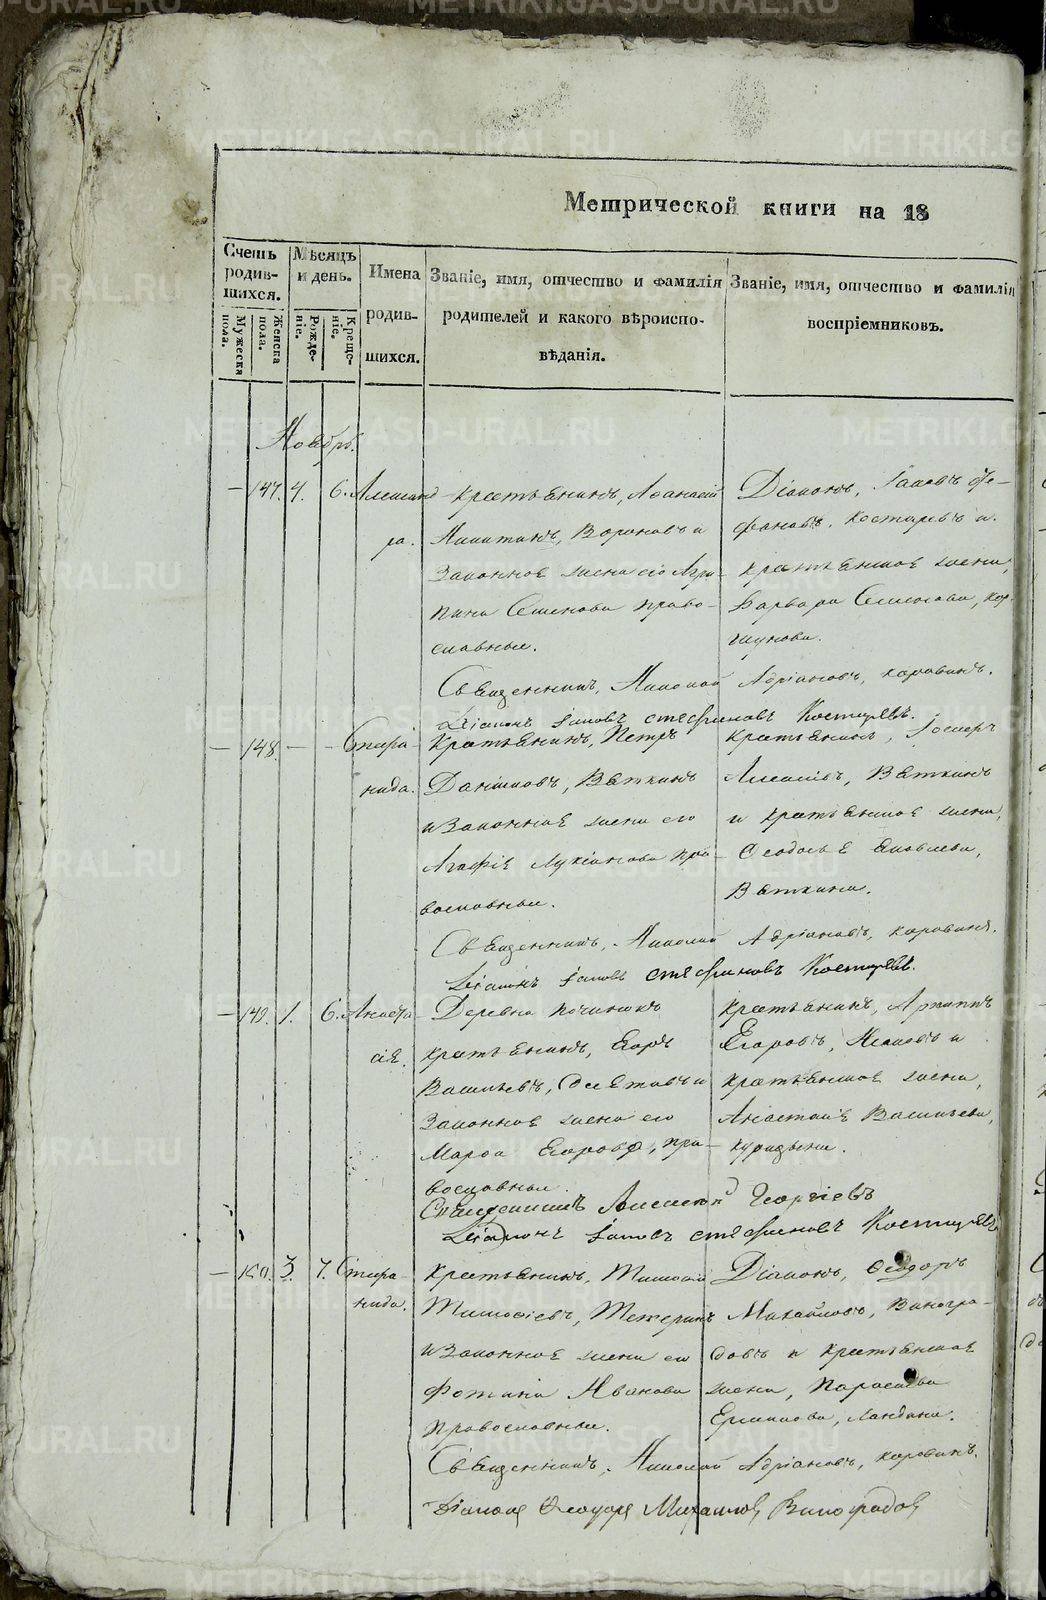 Метрической книги на 18
Счетъ родив-шихся.
Мужеска пола.
Женска пола.
Мѣсяцъ и день.
Рожде-ніе.
Креще-ніе.
Имена родив-шихся.
Званіе, имя, отчество и фамилія родителей и какого вѣроиспо-вѣданія.
Званіе, имя, отчество и фамилія воспріемниковъ.
Ноябрь.
— 147. 4. 6. Александ-
ра.
Крестьянинъ, Афанасій
Никитинъ, Вороновъ и
Законная жена его Агри-
пина Семенова право-
славные.
Діаконъ, Іаковъ Сте-
фановъ, Костаревъ и
крестьянская жена,
Варвара Семенова, Кор-
шунова.
Священникъ, Николай Адріановъ, Коровинъ.
Діаконъ Іаковъ Стефановъ Костаревъ.
— 148. — — Спири-
нида.
Крестьянинъ, Петръ
Даниловъ, Вяткинъ
и Законная жена его
Агафія Лукіанова пра-
вославные.
Крестьянинъ,
Алексіевъ, Вяткинъ
и крестьянская жена,
Феодосья Яковлева,
Вяткина.
Священникъ, Николай Адріановъ, Коровинъ.
Діаконъ Іаковъ Стефановъ Костаревъ.
— 149. 1. 6. Анаста-
сія.
Деревни Починокъ
крестьянинъ, Егоръ
Васильевъ, и
Законная жена его
Марфа Егорова, пра-
вославные
Крестьянинъ, Архипъ
Егоровъ, и
крестьянская жена,
Анастасія Васильева,
Священникъ Алексій Георгіевъ
Діаконъ Іаковъ Стефановъ Костаревъ
— 150. 3. 7.
нида.
Крестьянинъ, Тимофей
Тимофіевъ, Тетеринъ
и Законная жена его
Фотинія Иванова
православные.
Діаконъ, Феодоръ
Михайловъ, Виногра-
довъ и крестьянская
жена, Параскева
Ермилова, Ландина.
Священникъ, Николай Адріановъ, Коровинъ.
Діаконъ Феодоръ Михайловъ Виноградовъ